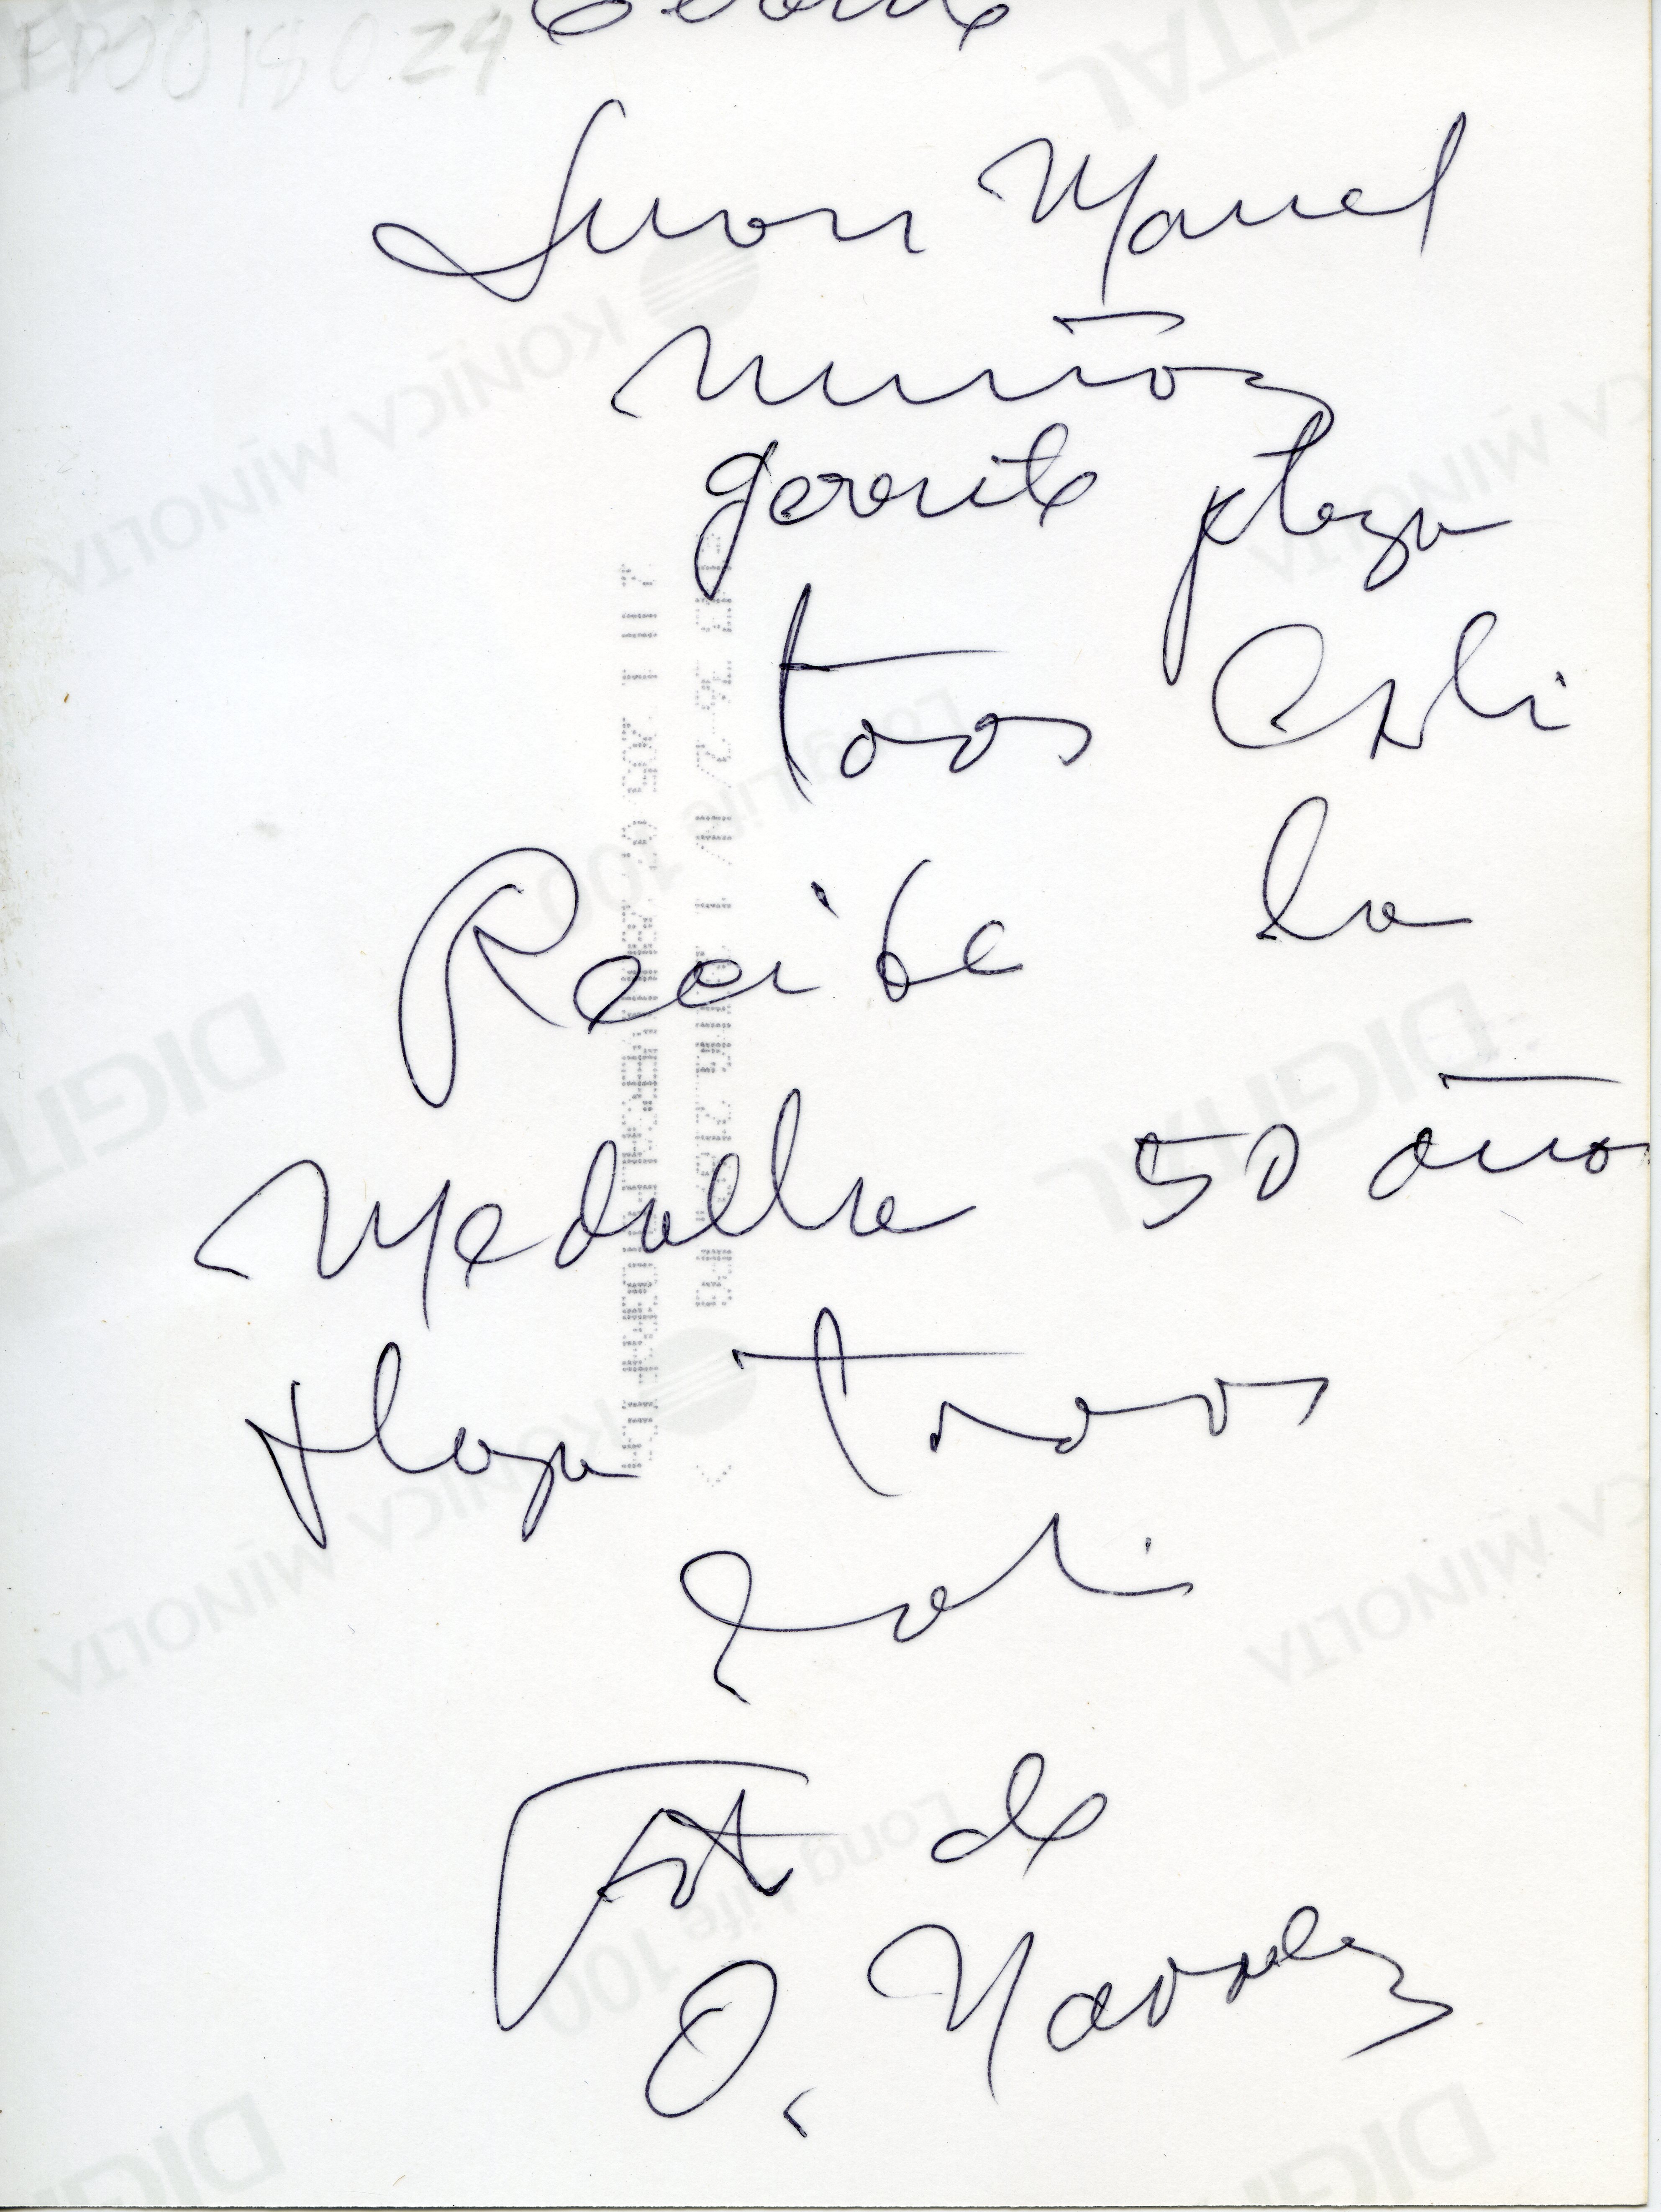 Juan Manuel
Muñoz
gerente plaza
toros Cali
Recibe la
Medalla 50 años
Plaza Toros
Cali
Foto de
O. Narvaez
KONICA MINOLTA
DIGITAL
Long Life 100